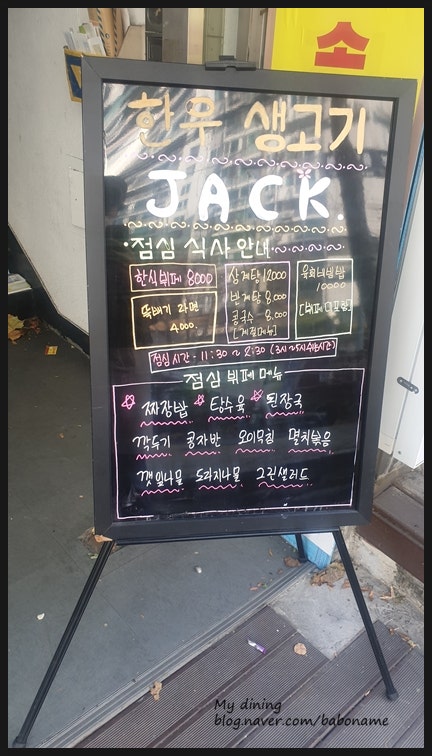 한우 생고기
JACK.
·점심 식사 안내·
한식뷔페 8000
뚝배기 라면
4.000.
삼계탕 12000
반계탕 8.000
콩국수 8.000
[계절메뉴]
육회비빔밥
10000
점심시간 - 11:30 ~ 2:30
점심 뷔페 메뉴
짜장밥 탕수육 된장국
깍두기 콩자반 오이무침 멸치볶음
깻잎나물 도라지나물 그린샐러드
My dining
blog.naver.com/baboname